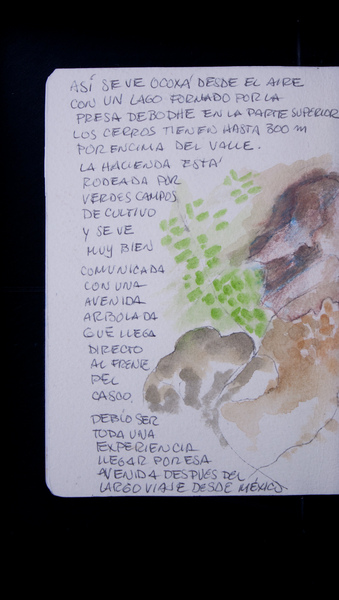 ASÍ SE VE OCOXÁ DESDE EL AIRE
CON UN LAGO FORNADO POR LA
PRESA DE BODHE EN LA PARTE SUPERIOR
LOS CERROS TIENEN HASTA 300 m
POR ENCIMA DEL VALLE.
LA HACIENDA ESTÁ
RODEADA POR
VERDES CAMPOS
DE CULTIVO
Y SE VE
MUY BIEN
COMUNICADA
CON UNA
AVENIDA
ARBOLADA
QUE LLEGA
DIRECTO
AL FRENE
DEL
CASCO.
DEBÍO SER
TODA UNA
EXPERIENCIA
LLEGAR POR ESA
AVENIDA DESPUES DEL
LARGO VIAJE DESDE MÉXICO